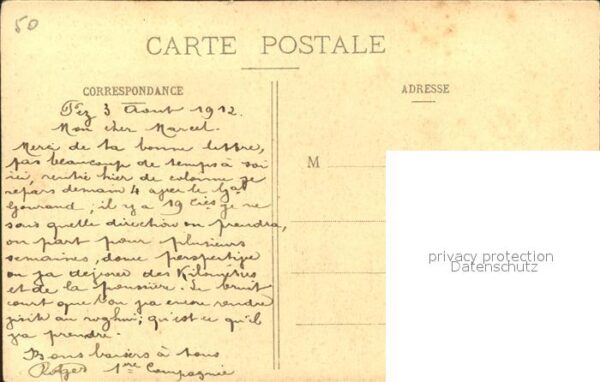 50
CARTE POSTALE
CORRESPONDANCE
ADRESSE
Fez 3 Aout 1912.
Mon cher Marcel.
Merci de ta bonne lettre,
pas beaucoup de temps à soi
ici, rentré hier de colonne je
repars demain 4 avec le Gal
Gouraud, il y a 19 Cies je ne
sais quelle direction on prendra,
on part pour plusieurs
semaines, douce perspective
on va dévorer des Kilomètres
et de la poussière. Le bruit
court que l'on va encore rendre
visite au roghui; qu'est ce qu'il
va prendre.
Bons baisers à tous
1ère Compagnie
M
privacy protection
Datenschutz